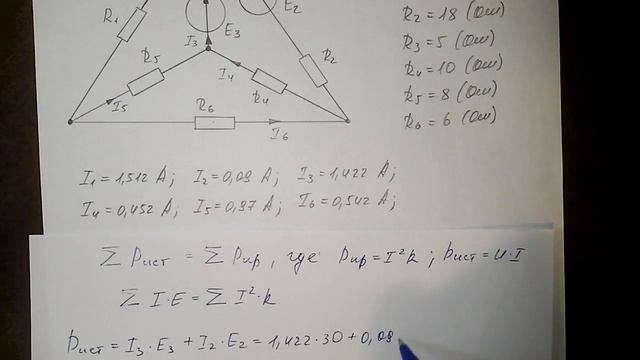 R₁
E₂
I₃
E₃
R₂
R₅
I₄
R₄
I₅
R₆
I₆
R₂ = 18 (Ом)
R₃ = 5 (Ом)
R₄ = 10 (Ом)
R₅ = 8 (Ом)
R₆ = 6 (Ом)
I₁ = 1,512 A; I₂ = 0,09 A; I₃ = 1,422 A;
I₄ = 0,452 A; I₅ = 0,97 A; I₆ = 0,542 A;
∑ Pист = ∑ Pпр, где Pпр = I²R; Pист = U·I
∑ I·E = ∑ I²·R
Pист = I₃·E₃ + I₂·E₂ = 1,422·30 + 0,09